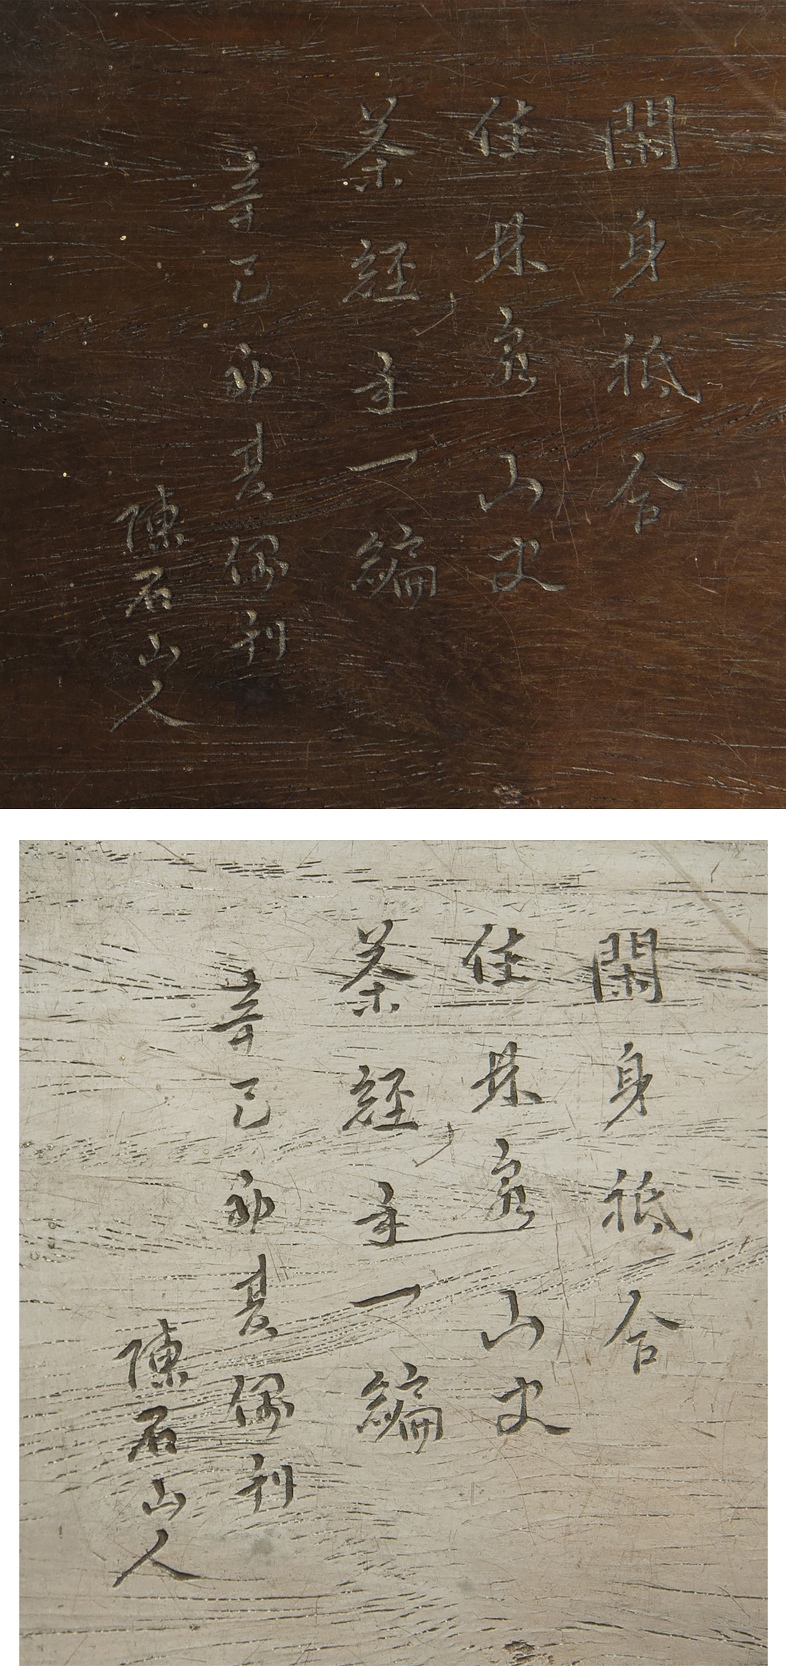 閑身祗合
住林泉山史
茶經手一編
辛巳初夏偶刊
陳石山人
閑身祗合
住林泉山史
茶經手一編
辛巳初夏偶刊
陳石山人